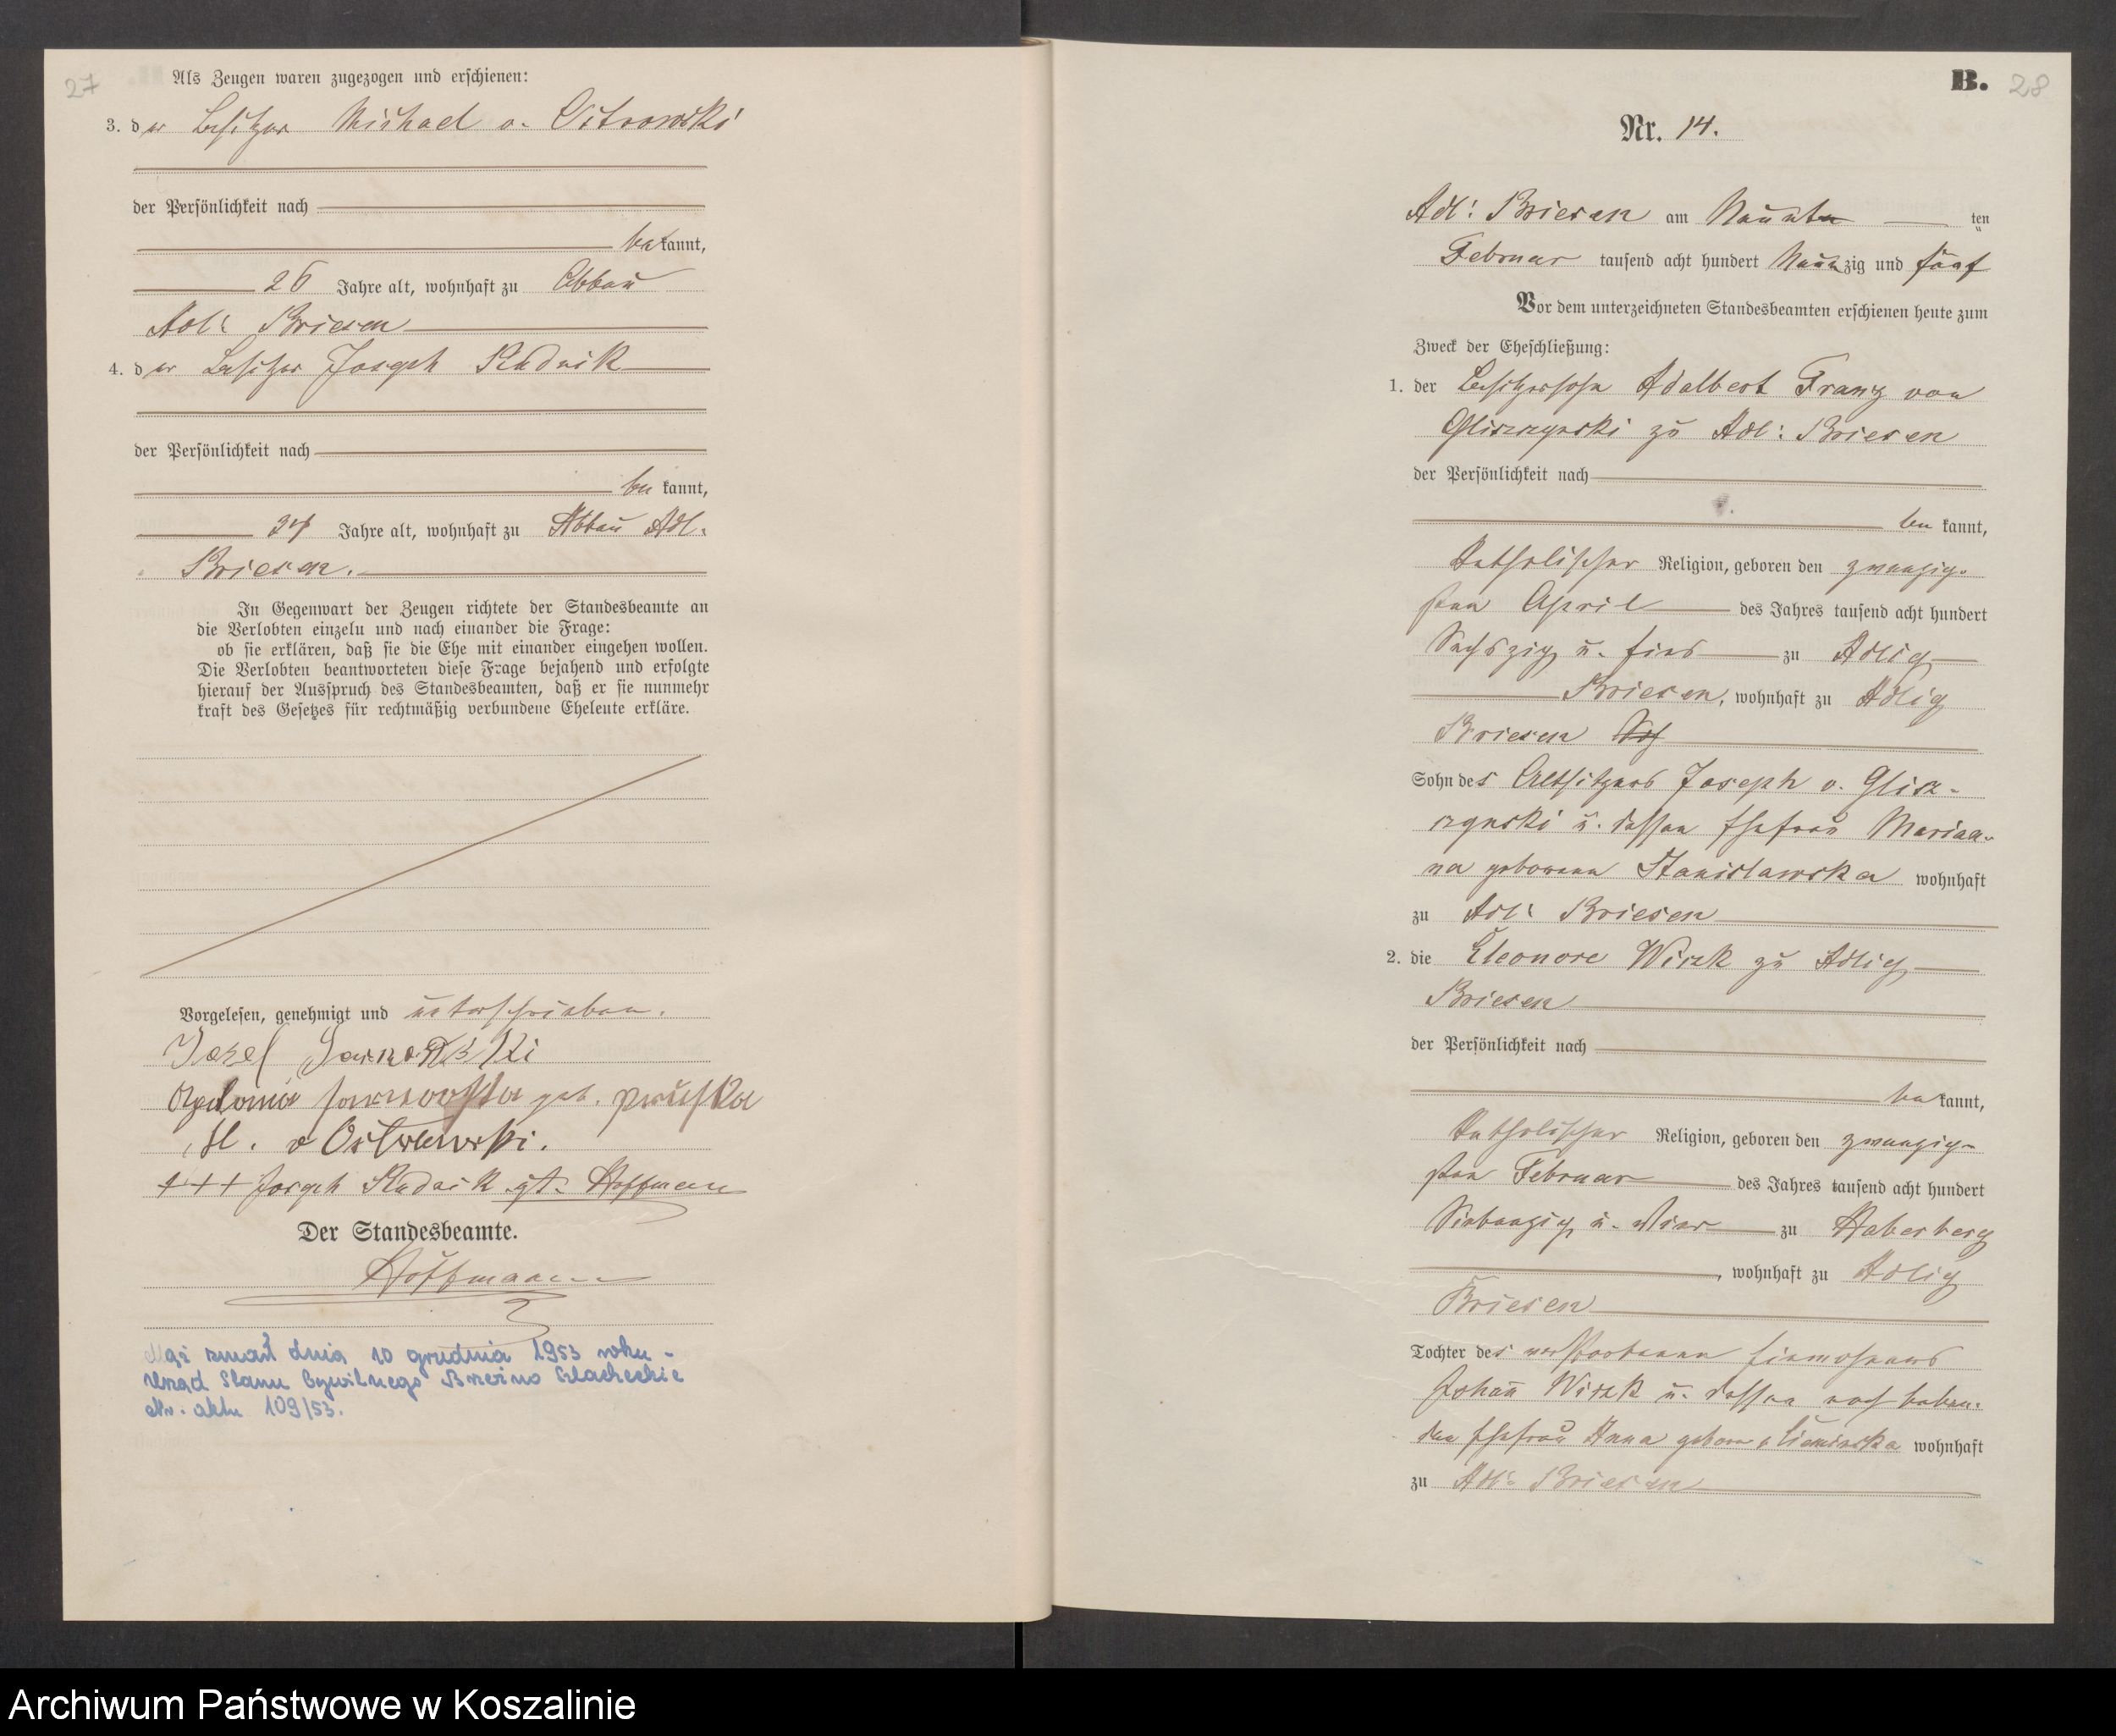 27
Als Zeugen waren zugezogen und erschienen:
3. der Besitzer Michael v. Ostrowski
der Persönlichkeit nach
bekannt,
26 Jahre alt, wohnhaft zu Abbau
Adl: Briesen
4. der Besitzer Joseph Rudnik
der Persönlichkeit nach
bekannt,
34 Jahre alt, wohnhaft zu Abbau Adl.
Briesen.
In Gegenwart der Zeugen richtete der Standesbeamte an
die Verlobten einzeln und nach einander die Frage:
ob sie erklären, daß sie die Ehe mit einander eingehen wollen.
Die Verlobten beantworteten diese Frage bejahend und erfolgte
hierauf der Ausspruch des Standesbeamten, daß er sie nunmehr
kraft des Gesetzes für rechtmäßig verbundene Eheleute erkläre.
Vorgelesen, genehmigt und unterschrieben.
geb.
M. v Ostrowski.
+++ Joseph Rudnik gt. Hoffmann
Der Standesbeamte.
Hoffmann
Mąż zmarł dnia 10 grudnia 1953 roku -
Urząd Stanu Cywilnego Brzeźno Szlacheckie
Nr. aktu 109/53.
B. 28
Nr. 14.
Adl: Briesen am Neunten ten
Februar tausend acht hundert Neunzig und fünf
Vor dem unterzeichneten Standesbeamten erschienen heute zum
Zweck der Eheschließung:
1. der Besitzersohn Adalbert Franz von
Gliszczynski zu Adl: Briesen
der Persönlichkeit nach
bekannt,
Katholischer Religion, geboren den zwanzig-
sten April des Jahres tausend acht hundert
Sechszig u. eins zu Adlig
Briesen, wohnhaft zu Adlig
Briesen
Sohn des Altsitzers Joseph v. Glisz-
czynski u. dessen Ehefrau Marian-
na geborenen Stanislawska wohnhaft
zu Adl: Briesen
2. die Eleonore Wirzk zu Adlig
Briesen
der Persönlichkeit nach
bekannt,
Katholischer Religion, geboren den zwanzig-
sten Februar des Jahres tausend acht hundert
Siebenzig u. vier zu Haberberg
, wohnhaft zu Adlig
Briesen
Tochter des verstorbenen Einwohners
Johann Wirzk u. dessen noch leben-
den Ehefrau Anna geborne wohnhaft
zu Adl: Briesen
Archiwum Państwowe w Koszalinie